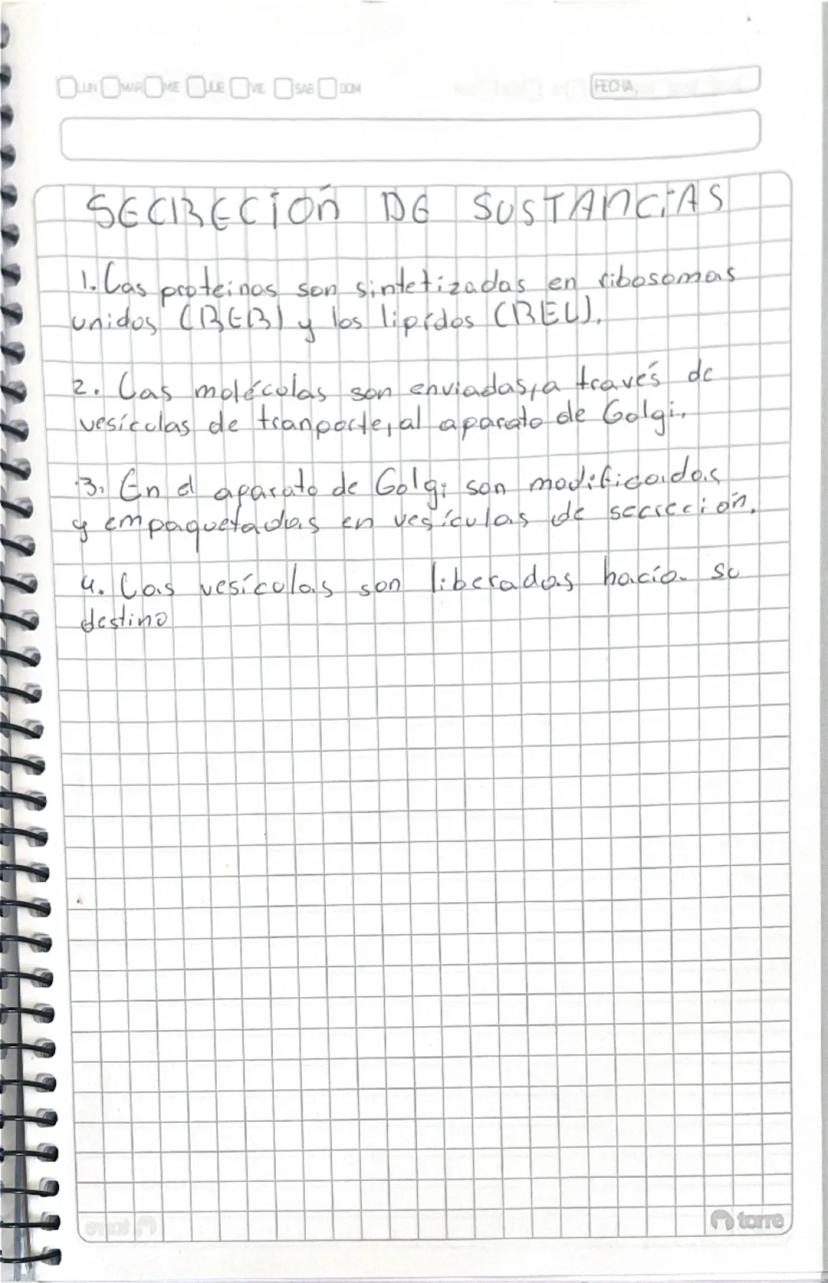 LUN MAR MIE JUE VIE SAB DOM FECHA
SECRECIÓN DE SUSTANCIAS
1. Las proteinas son sintetizadas en ribosomas
unidos (RER) y los lípidos (REL).
2. Las moléculas son enviadas, a través de
vesículas de tranporte, al aparato de Golgi.
3. En el aparato de Golgi son modificadas
y empaquetadas en vesículas de secreción.
4. Las vesículas son liberadas hacia su
destino
torre